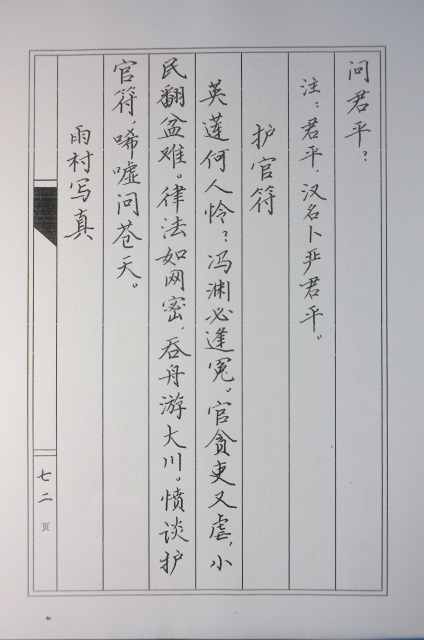 问君平？
注：君平，汉名卜严君平。
护官符
英莲何人怜？冯渊必逢冤。官贪吏又虐，小
民翻盆难。律法如网密，吞舟游大川。愤谈护
官符，唏嘘问苍天。
雨村写真
七二页